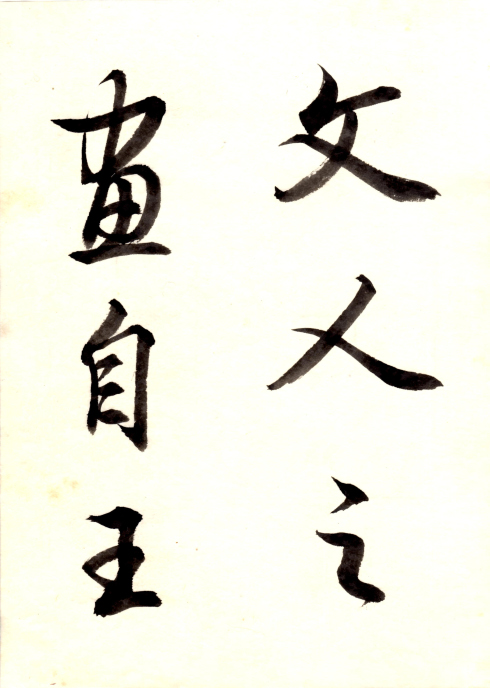 文人之
畫自王